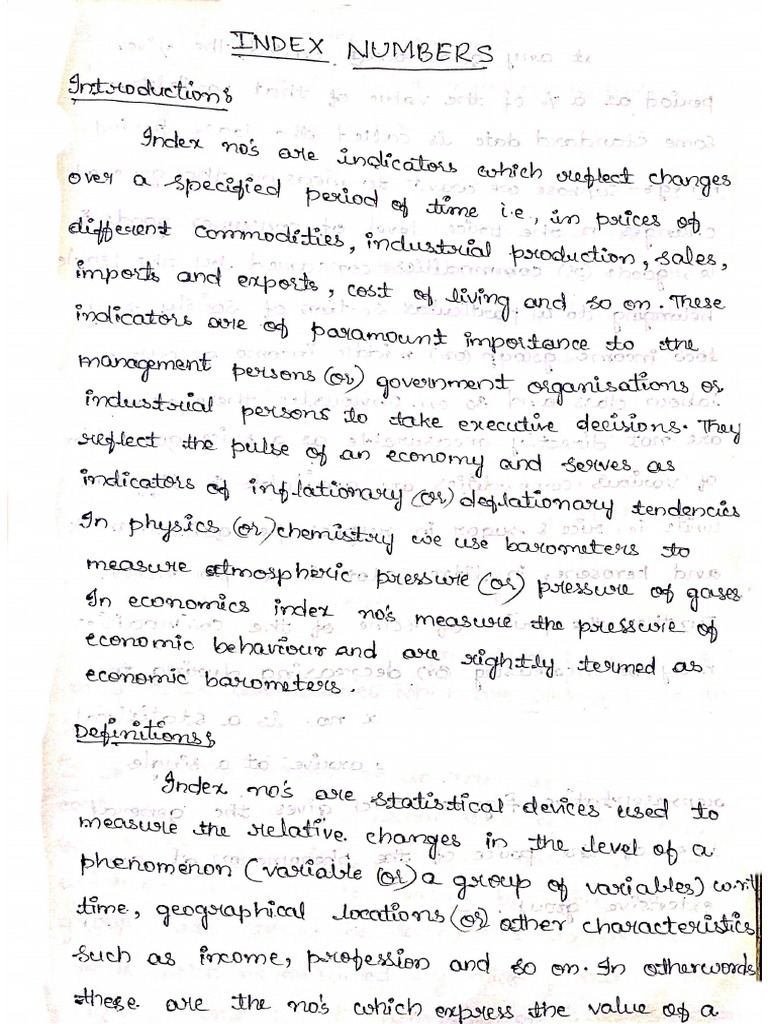 INDEX NUMBERS
Introduction:
Index no's are indicators which reflect changes
over a specified period of time i.e., in prices of
different commodities, industrial production, sales,
imports and exports, cost of living and so on. These
indicators are of paramount importance to the
management persons (or) government organisations or
industrial persons to take executive decisions. They
reflect the pulse of an economy and serves as
indicators of inflationary (or) deflationary tendencies
In physics (or) chemistry we use barometers to
measure atmospheric pressure (or) pressure of gases
In economics index no's measure the pressure of
economic behaviour and are rightly termed as
economic barometers.
Definitions:
Index no's are statistical devices used to
measure the relative changes in the level of a
phenomenon (variable (or) a group of variables) w.r.t
time, geographical locations (or) other characteristics
such as income, profession and so on. In otherwords
these are the no's which express the value of a